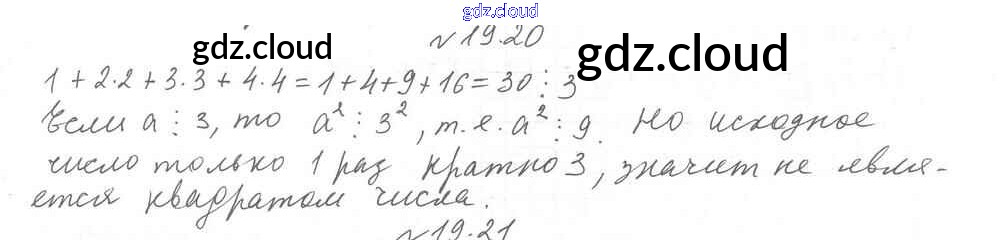 gdz.cloud
№19.20
gdz.cloud
gdz.cloud
1 + 2·2 + 3·3 + 4·4 = 1 + 4 + 9 + 16 = 30 ⋮ 3
Если a ⋮ 3, то a² ⋮ 3², т.е. a² ⋮ 9. Но исходное
число только 1 раз кратно 3, значит не явля-
ется квадратом числа.
№19.21